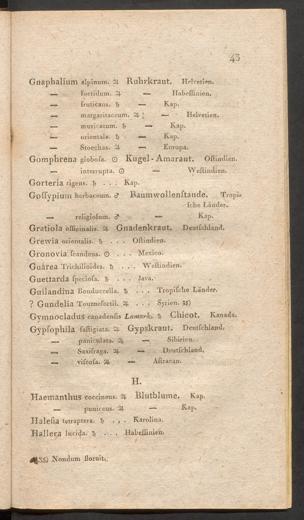 43
Gnaphalium alpinum. ♃ Ruhrkraut. Helvetien.
— foetidum. ♃ — Habessinien.
— fruticans. ♄ — Kap.
— margaritaceum. ♃ — Helvetien.
— muricatum. ♄ — Kap.
— orientale. ♄ — Kap.
— Stoechas. ♃ — Europa.
Gomphrena globosa. ☉ Kugel-Amaraut. Ostindien.
— interrupta. ☉ — Westindien.
Gorteria rigens. ♄ . . . Kap.
Gossypium herbaceum. ♂ Baumwollenstaude. Tropi-
sche Länder.
— religiosum. ♂ — Kap.
Gratiola officinalis. ♃ Gnadenkraut. Deutschland.
Grewia orientalis. ♄ . . . Ostindien.
Gronovia scandens. ☉ . . . Mexico.
Guarea Trichilioides. ♄ . . . Westindien.
Guettarda speciosa. ♄ . . . Java.
Guilandina Bonduccella. ♄ . . . Tropische Länder.
? Gundelia Tournefortii. ♃ . . . Syrien. 35)
Gymnocladus canadensis Lamark. ♄ Chicot. Kanada.
Gypsophila fastigiata. ♃ Gypskraut. Deutschland.
— paniculata. ♃ — Sibirien.
— Saxifraga. ♃ — Deutschland.
— viscosa. ♃ — Astracan.
H.
Haemanthus coccineus. ♃ Blutblume. Kap.
— puniceus. ♃ — Kap.
Halesia tetraptera. ♄ . . . Karolina.
Halleria lucida. ♄ . . . Habessinien.
35) Nondum floruit.